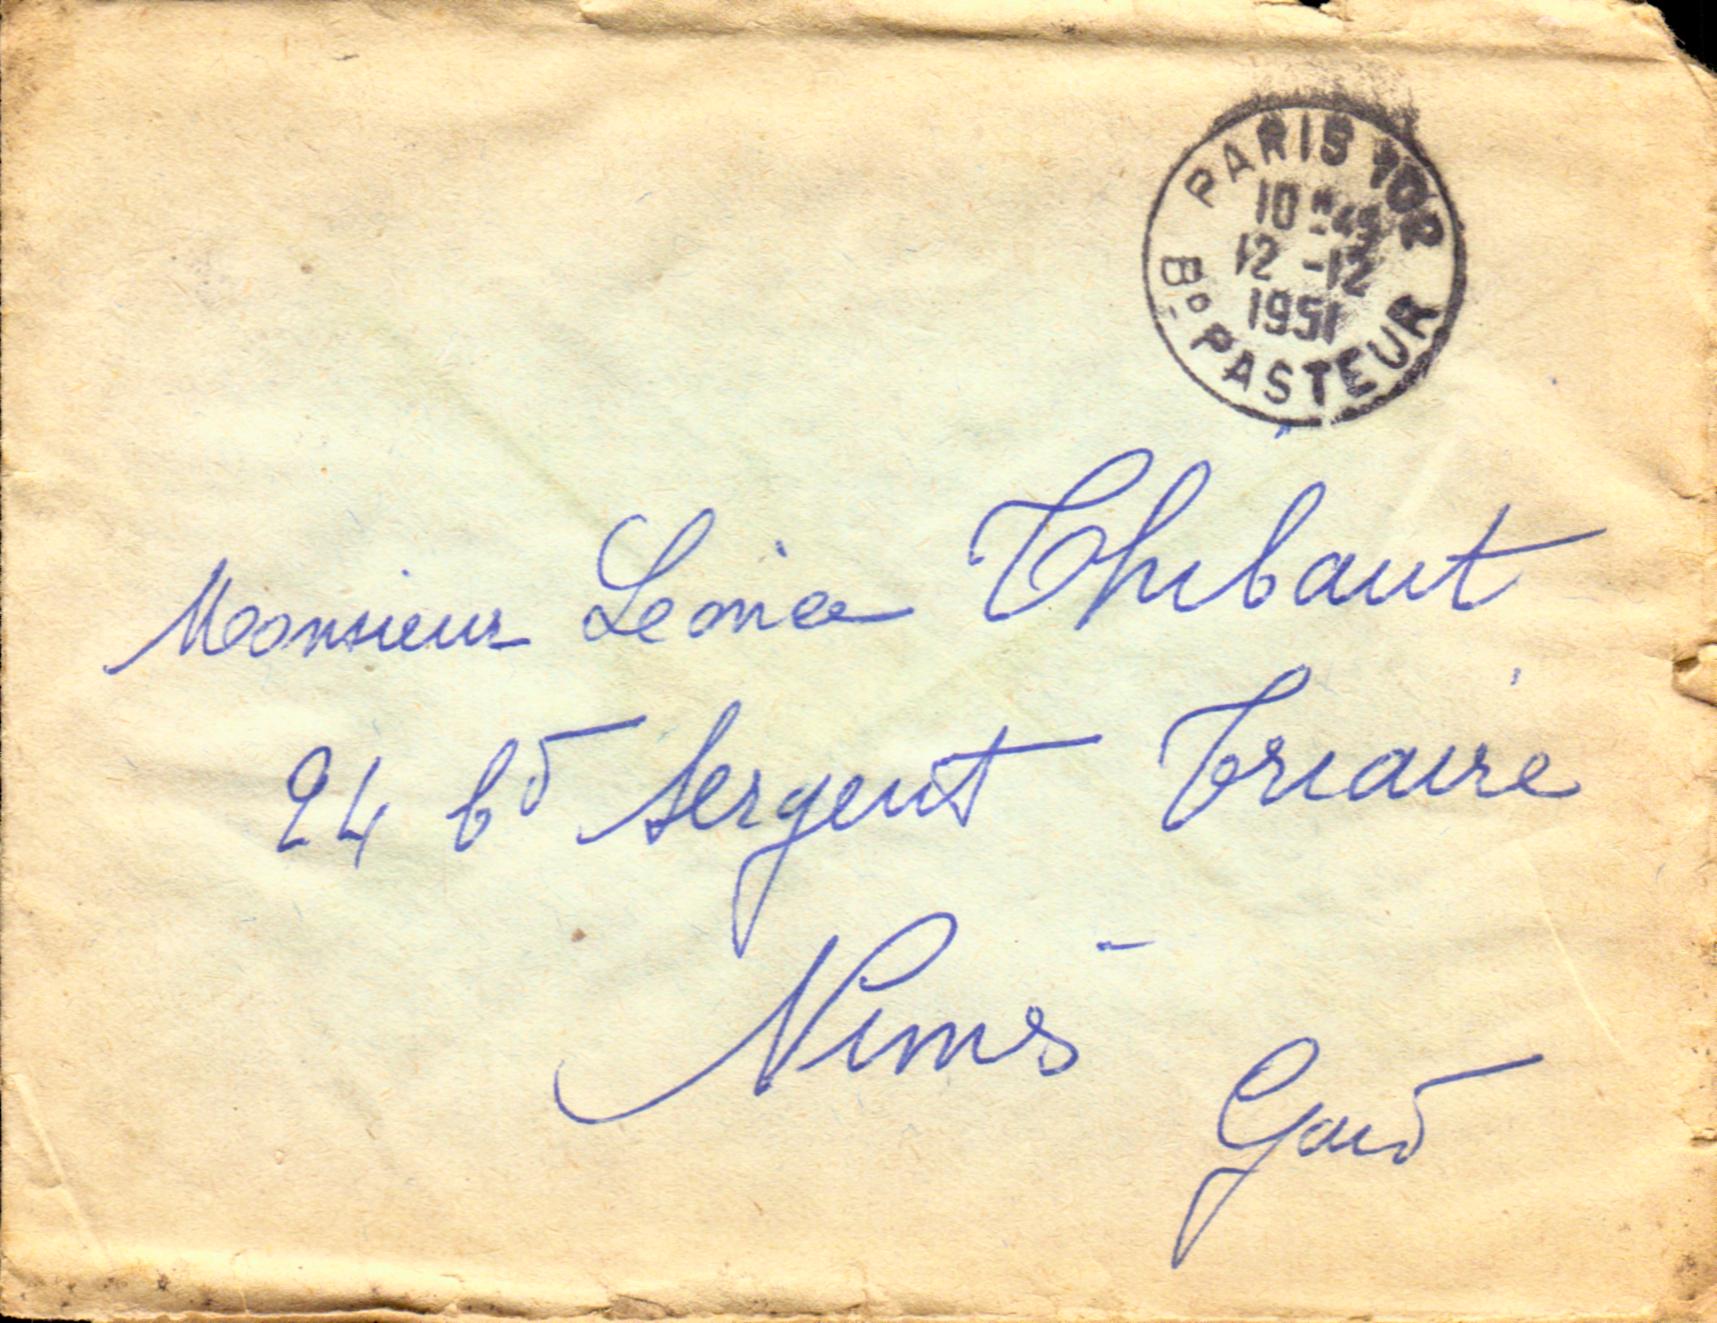 PARIS 102
10 H 45
12 - 12
1951
Bᴅ PASTEUR
Monsieur Léonce Thibaut
24 bd Sergent Triaire
Nimes
Gard